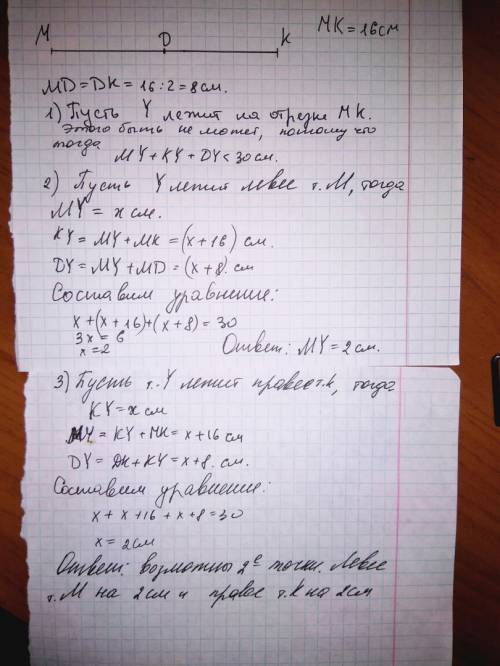 M D K MK = 16 см
MD = DK = 16 : 2 = 8 см.
1) Пусть Y лежит на отрезке MK.
Этого быть не может, потому что
тогда
MY + KY + DY < 30 см.
2) Пусть Y лежит левее т. M, тогда
MY = x см.
KY = MY + MK = (x + 16) см.
DY = MY + MD = (x + 8) см
Составим уравнение:
x + (x + 16) + (x + 8) = 30
3x = 6
x = 2 Ответ: MY = 2 см.
3) Пусть т. Y лежит правее т. K, тогда
KY = x см
MY = KY + MK = x + 16 см
DY = DK + KY = x + 8 см.
Составим уравнение:
x + x + 16 + x + 8 = 30
x = 2 см
Ответ: возможны 2е точки. Левее
т. M на 2 см и правее т. K на 2 см